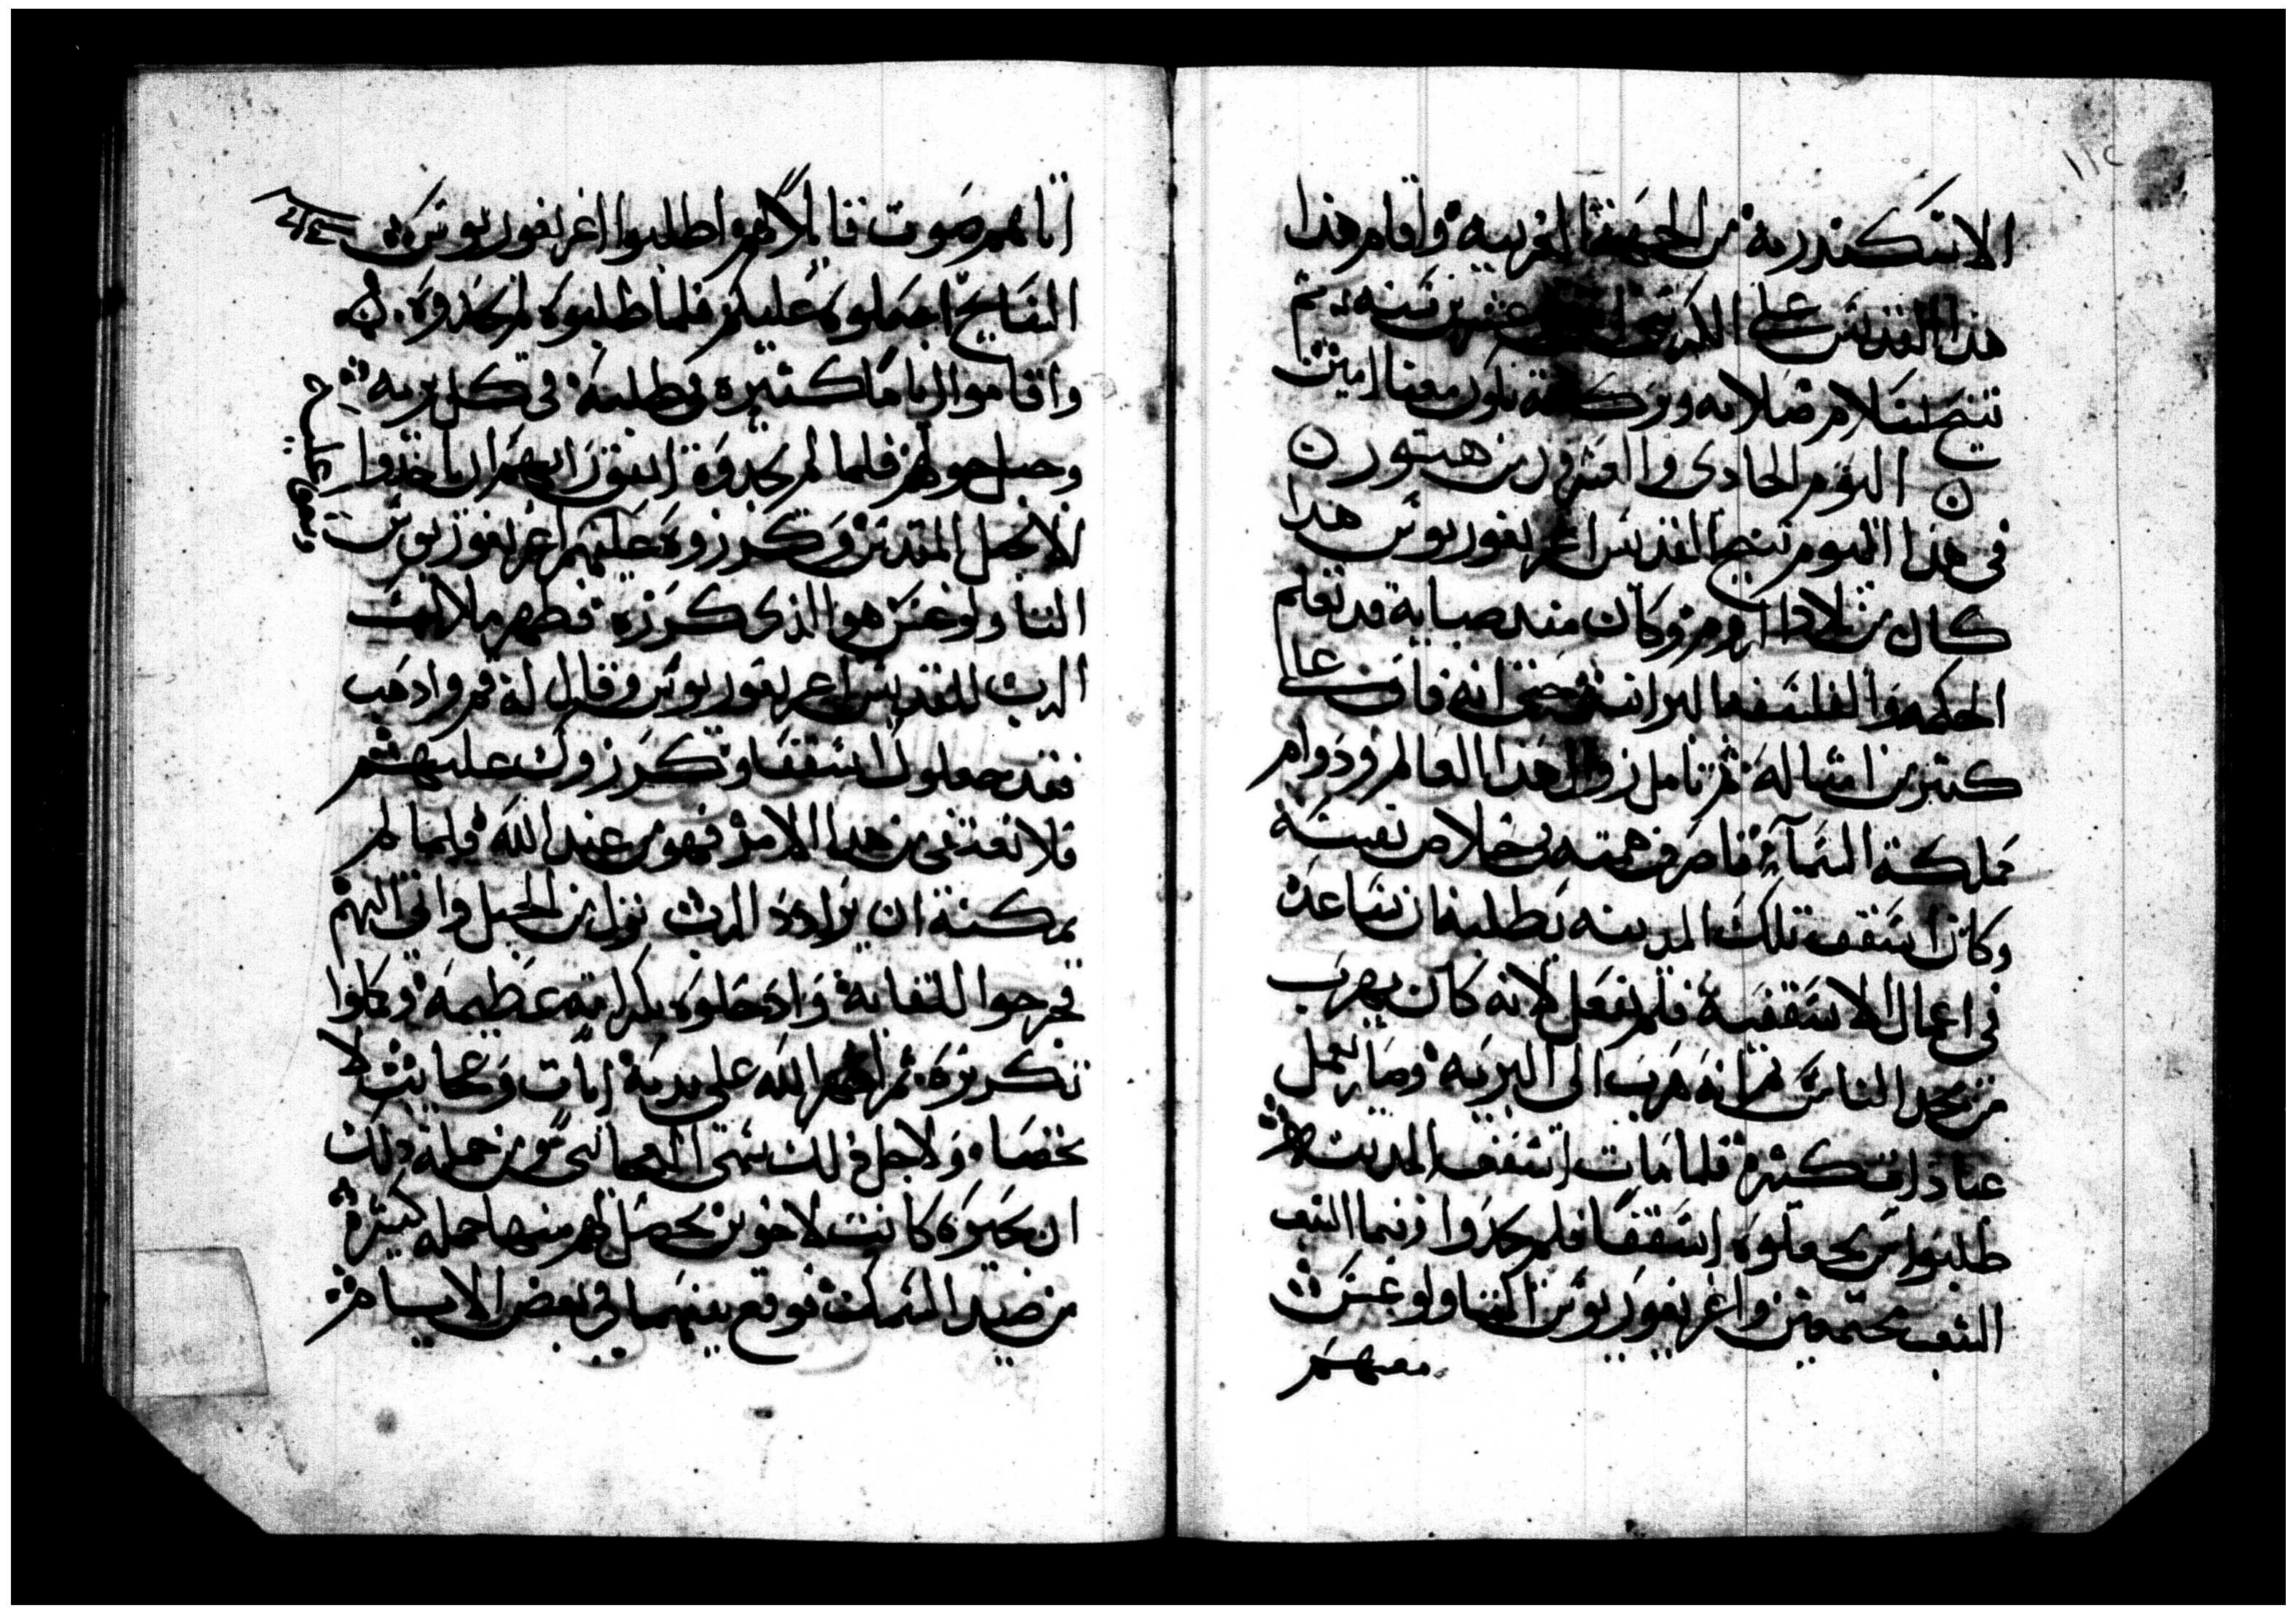 ١١٤
الاسكندريه من الجهه الغربيه واقام هذا
هذا القديس على الكرسي عشرين سنه ثم
تنيح بسلام صلاته وبركته تكون معنا امين
اليوم الحادى والعشرون من هتور
فى هذا اليوم تنيح القديس اغريغوريوس هذا
كان من بلاد الروم وكان منذ صباية قد تعلم
الحكمه والفلسفه البرانيه حتى انه فاق على
كثير من امثاله ثم تامل زوال هذا العالم ودوام
مملكة السماء فاصرف همته فى خلاص نفسه
وكان اسقف تلك المدينه يطلبه ان يساعده
فى اعمال الاسقفية فلم يفعل لانه كان يهرب
من مجد الناس ثم انه هرب الى البريه وصار يعمل
عبادات كثيره فلما مات اسقف المدينه
طلبوا من يجعلوه اسقفا فلم يجدوا وفيما الشعب
الشعب مجتمعين واغريغوريوس الثاولوغس
معهم
اتاهم صوت قايلا لهم اطلبوا اغريغوريوس
السايح اجعلوه عليكم فلما طلبوه لم يجدوه
واقاموا اياما كثيره فى طلبه فى كل بريه
وجبل حولهم فلما لم يجدوه اتفق رايهم ان ياخذوا
الانجيل المقدس وكرزوه عليهم اغريغوريوس
الثاولوغس هو الذى كرزه فظهر ملاك
الرب للقديس اغريغوريوس وقال له قم واذهب
فقد جعلوك اسقفا وكرزوك عليهم
فلا تعتفى من هذا الامر فهو من عند الله فلما لم
يمكنه ان يرادد الرب نزل من الجبل واتى اليهم
فخرجوا للقايه وادخلوه بكرامه عظيمه وكملوا
تكريزه ثم اظهر الله على يديه ايات وعجايب لا
تحصا ولاجل ذلك سمى العجايبى فمن جملة ذلك
ان بحيره كانت لاخوين يحصل لهم منها جمله كبيره
من صيد السمك فوقع بينهما فى بعض الايام